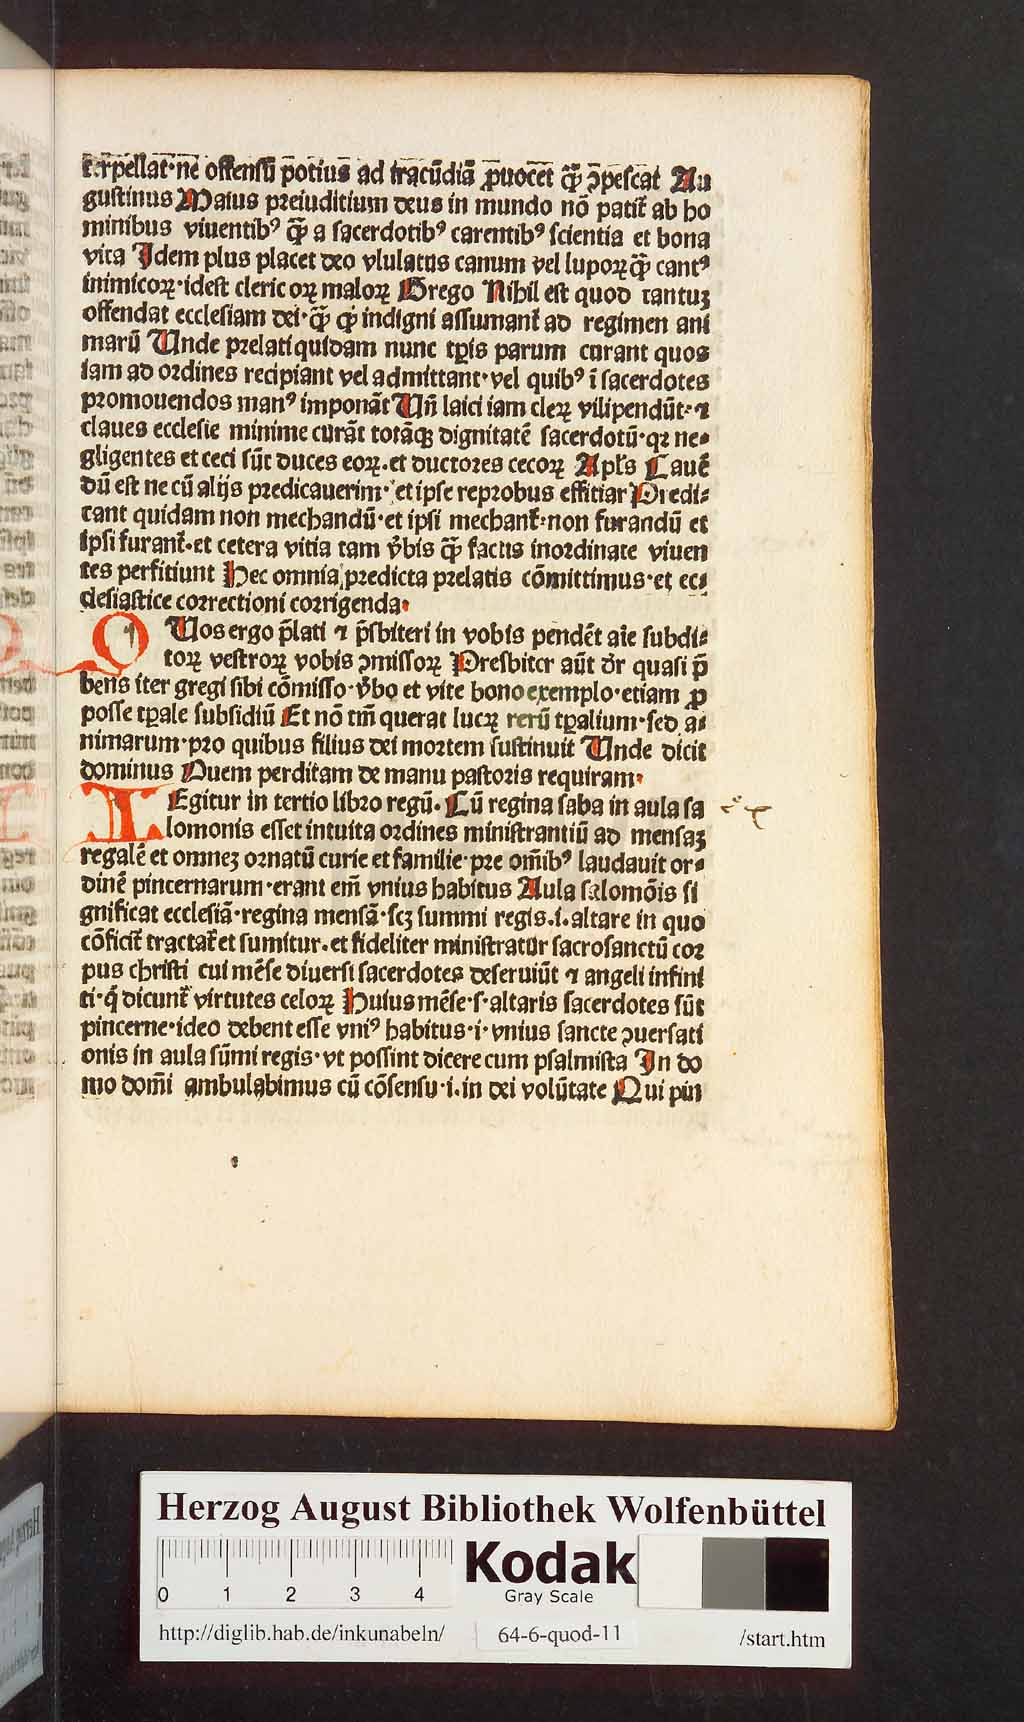 terpellat·ne offensũ põtius ad tracũdiã ꝓuocet q̃ꝫ ꝯpescat Au
gustinus Maius preiuditium deus in mundo nõ patit᷑ ab ho
minibus viuentibꝰ q̃ꝫ a sacerdotibꝰ carentibꝰ scientia et bona
vita Idem plus placet deo vlulatus canum vel lupoꝝ q̃ꝫ cantꝰ
inimicoꝝ·idest clericoꝝ maloꝝ Grego Nihil est quod tantuꝫ
offendat ecclesiam dei·q̃ꝫ ꝙ indigni assumant᷑ ad regimen ani
marũ Unde prelati quidam nunc tꝑis parum curant quos
iam ad ordines recipiant vel admittant·vel quibꝰ ĩ sacerdotes
promouendos manꝰ imponãt Uñ laici iam cleꝝ vilipendũt·⁊
claues ecclesie minime curãt totãqꝫ dignitatẽ sacerdotũ·qꝛ ne⸗
gligentes et ceci sũt duces eoꝝ·et ductores cecoꝝ Apl̃s Cauẽ
dũ est ne cũ alijs predicauerim·et ipse reprobus effitiar Predi⸗
cant quidam non mechandũ·et ipsi mechant᷑:non furandũ et
ipsi furant᷑·et cetera vitia tam v̓bis q̃ꝫ factis inordinate viuen
tes perfitiunt Hec omnia predicta prelatis cõmittimus·et ec⸗
clesiastice correctioni corrigenda·
Uos ergo p̃lati ⁊ p̃sbiteri in vobis pendẽt aĩe subdi⸗
toꝝ vestroꝝ vobis ꝯmissoꝝ Presbiter aũt dr̃ quasi p̃
bens iter gregi sibi cõmisso·v̓bo et vite bono exemplo·etiam ꝓ
posse tꝑale subsidiũ Et nõ tm̃ querat lucꝝ rerũ tꝑalium·sed a⸗
nimarum·pro quibus filius dei mortem sustinuit Unde dicit
dominus Quem perditam de manu pastoris requiram·
LEgitur in tertio libro regũ· Cũ regina saba in aula sa
lomonis esset intuita ordines ministrantiũ ad mensaꝫ
regalẽ et omneꝫ ornatũ curie et familie·pre om̃ibꝰ laudauit or⸗
dinẽ pincernarum·erant em̃ vnius habitus Aula salomõis si
gnificat ecclesiã·regina mensã·scꝫ summi regis·i·altare in quo
cõficit᷑ tractat᷑ et sumitur·et fideliter ministratur sacrosanctũ cor
pus christi cui mẽse diuersi sacerdotes deseruiũt ⁊ angeli infini
ti·q̃ dicunt᷑ virtutes celoꝝ Huius mẽse·s·altaris sacerdotes sũt
pincerne·ideo debent esse vniꝰ habitus·i·vnius sancte ꝯuersati
onis in aula sũmi regis·vt possint dicere cum psalmista In do
mo dom̃i ambulabimus cũ cõsensu·i·in dei volũtate Qui pin
Herzog August Bibliothek Wolfenbüttel
0 1 2 3 4
Kodak
Gray Scale
http://diglib.hab.de/inkunabeln/ 64-6-quod-11 /start.htm